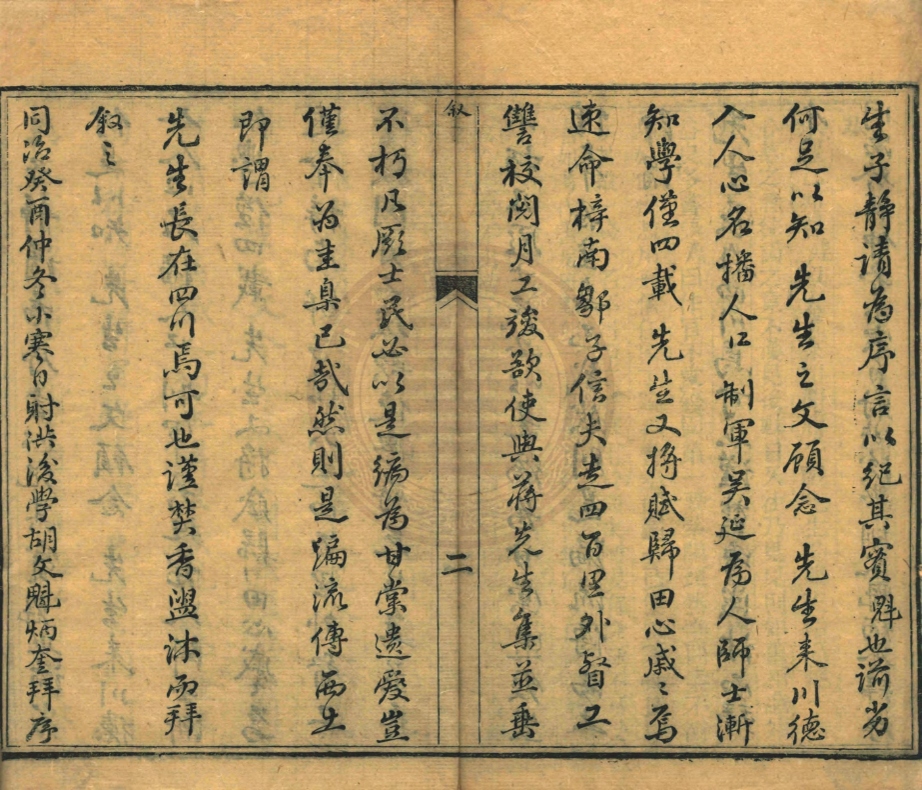 生子静請為序言以紀其實魁也谫劣
何足以知 先生之文顧念 先生来川德
入人心名播人口制軍吴延為人師士漸
知學僅四載 先生又將賦歸田心戚〻焉
速命梓南鄒子信夫走四百里外督工
讐校閱月工竣欲使與蔣先生集並垂
叙
二
不朽凡厥士民必以是編為甘棠遺愛豈
僅奉為圭臬已哉然則是編流傳西土
即謂
先生長在四川焉可也謹焚香盥沐而拜
叙之
同治癸酉仲冬小寒日射洪後學胡文魁炳奎拜序